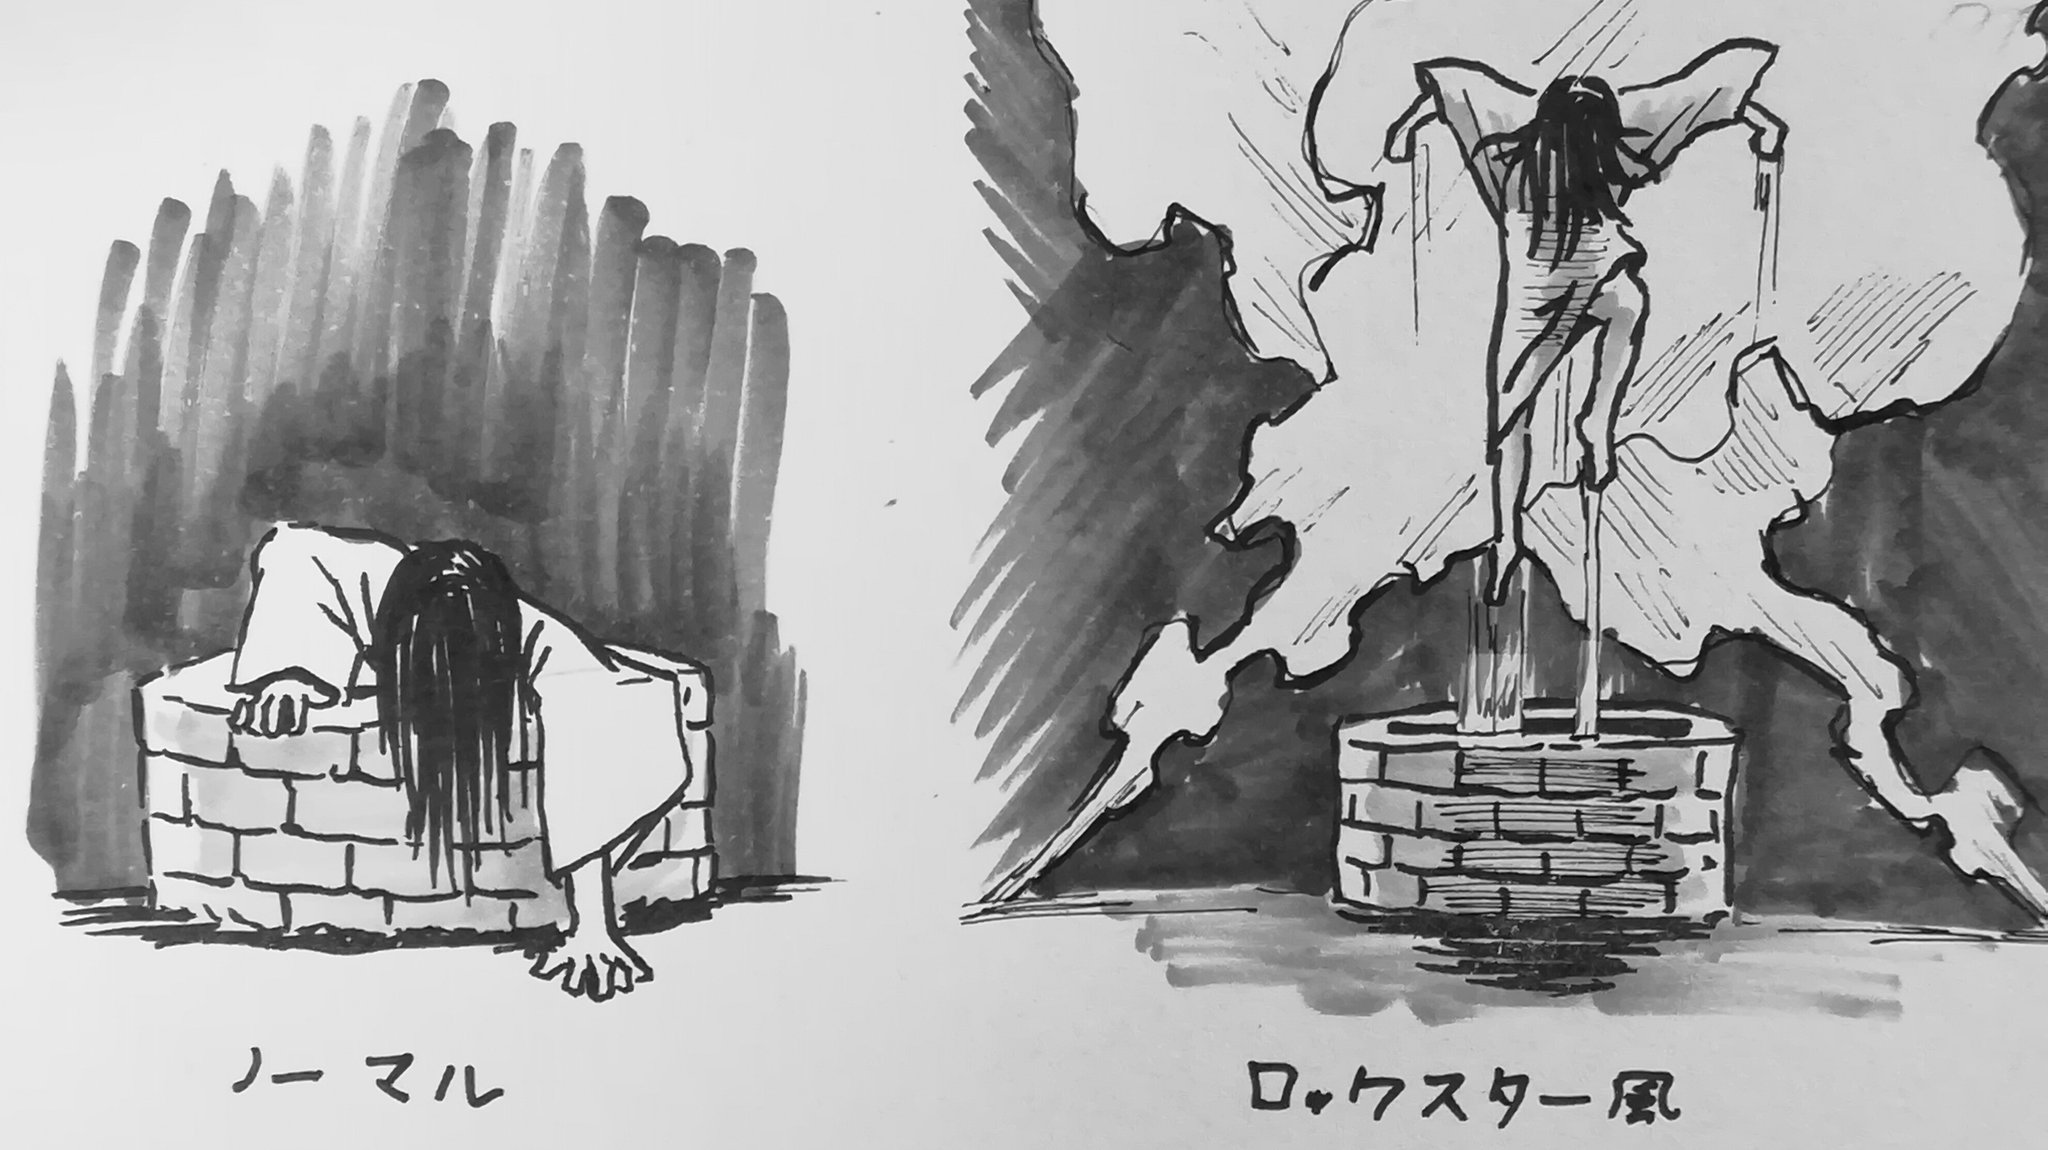 ノーマル
ロックスター風